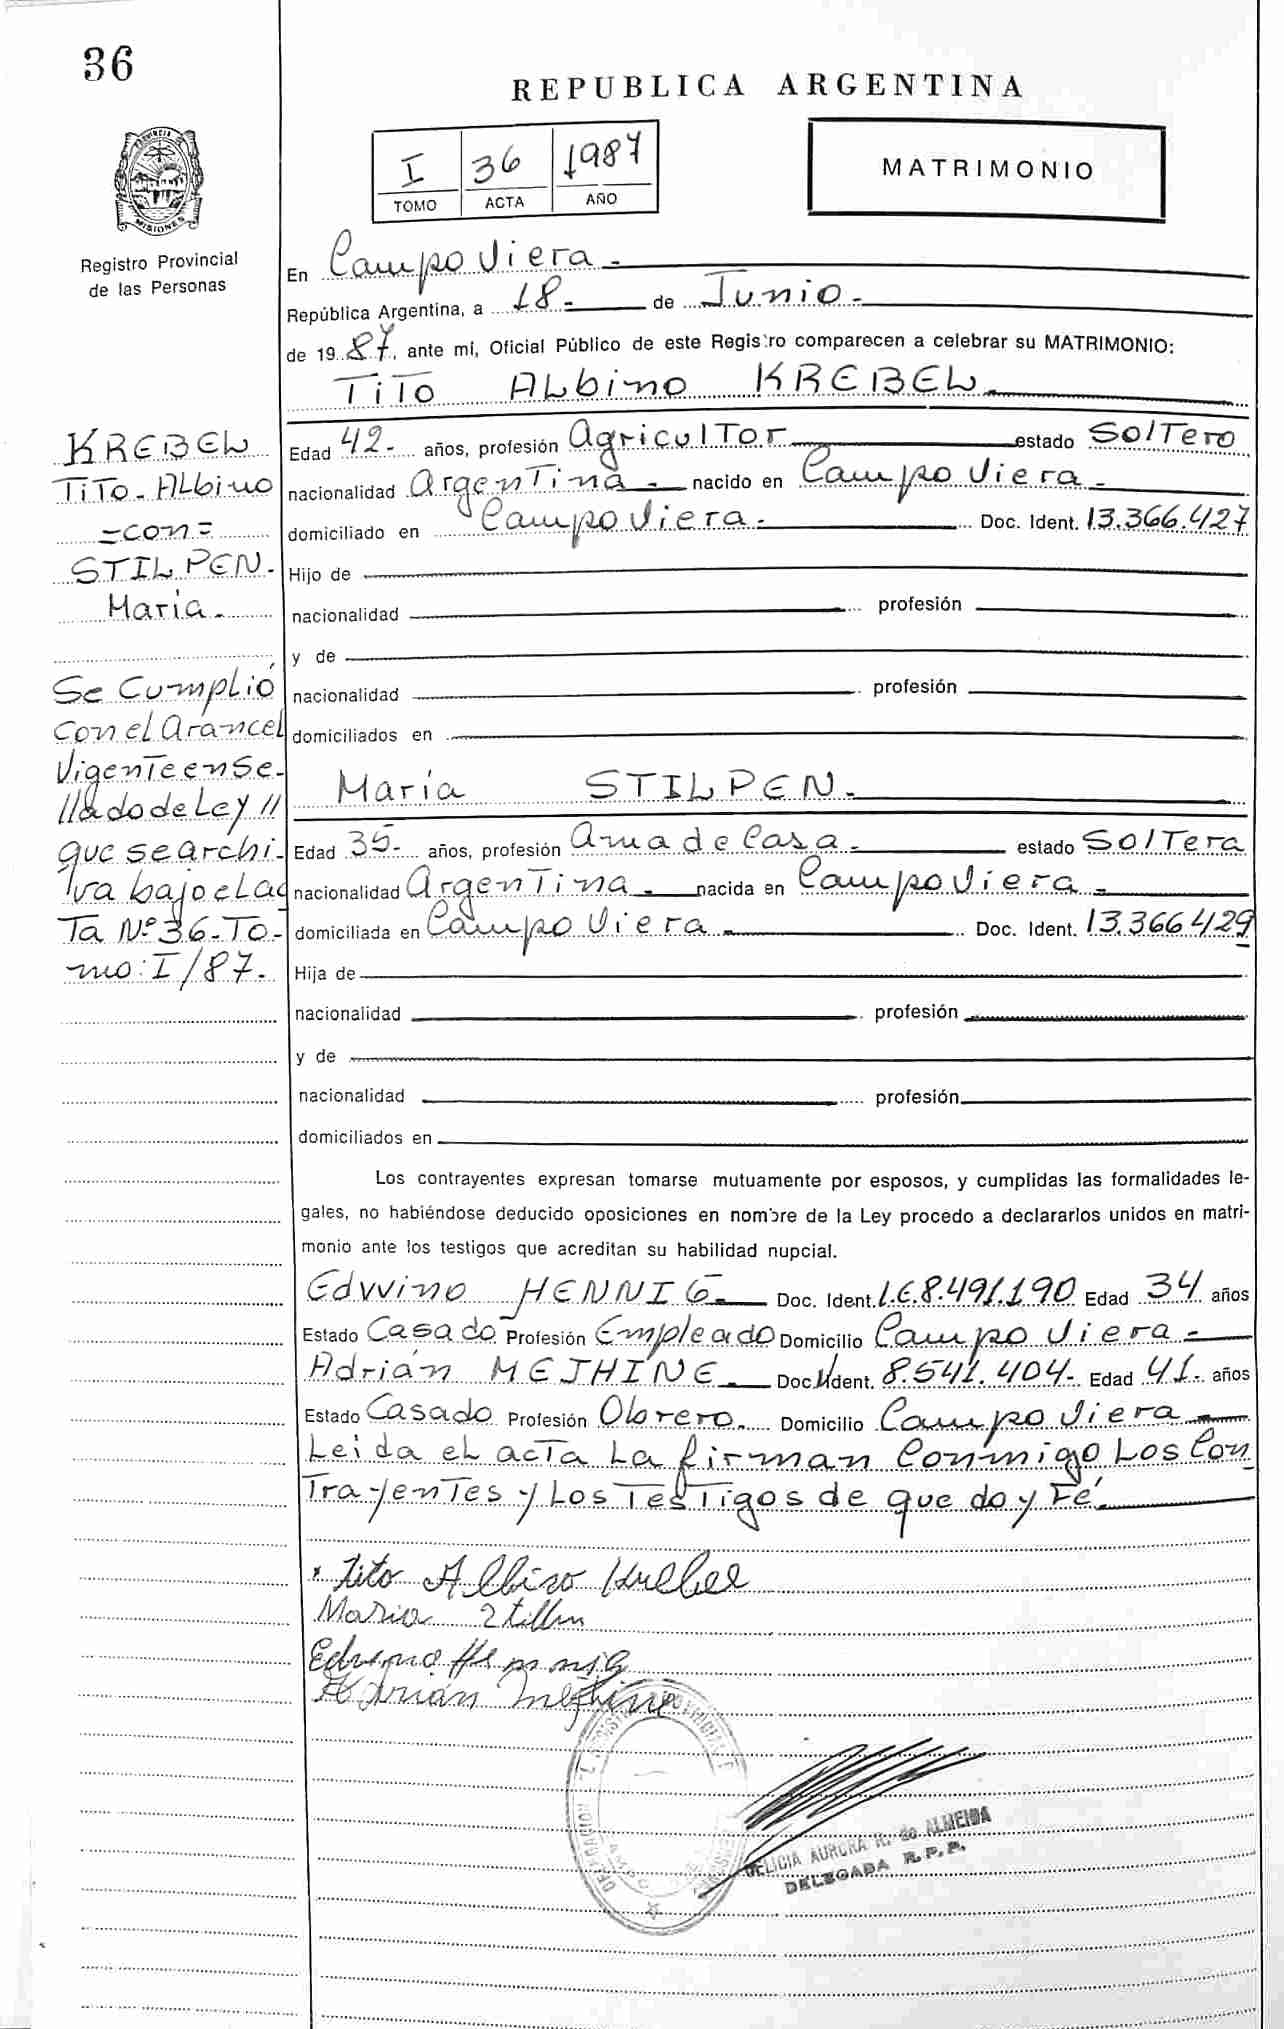 36
REPUBLICA ARGENTINA
PROVINCIA
MISIONES
Registro Provincial
de las Personas
I 36 1987
TOMO ACTA AÑO
MATRIMONIO
En Campo Viera.-
República Argentina, a 18.- de Junio.-
de 1987, ante mí, Oficial Público de este Registro comparecen a celebrar su MATRIMONIO:
TiTo ALbino KREBEL.
KREBEL
TiTo - ALbino
=con=
STILPEN.-
María.-
Se CumpLió
con el Arancel
Vigente en Se-
llado de Ley //
que se archi-
va bajo el Ac
Ta Nº 36-To-
mo: I/87.-
Edad 42.- años, profesión AgriculTor estado SolTero
nacionalidad ArgenTina.- nacido en Campo Viera.-
domiciliado en Campo Viera.- Doc. Ident. 13.366.427
Hijo de
nacionalidad profesión
y de
nacionalidad profesión
domiciliados en
María STILPEN.-
Edad 35- años, profesión Ama de Casa.- estado SolTera
nacionalidad ArgenTina.- nacida en Campo Viera.-
domiciliada en Campo Viera.- Doc. Ident. 13.366429
Hija de
nacionalidad profesión
y de
nacionalidad profesión
domiciliados en
Los contrayentes expresan tomarse mutuamente por esposos, y cumplidas las formalidades le-
gales, no habiéndose deducido oposiciones en nombre de la Ley procedo a declararlos unidos en matri-
monio ante los testigos que acreditan su habilidad nupcial.
Edwino HENNIG.- Doc. Ident. L.E.8.491.190 Edad 34 años
Estado Casado Profesión Empleado Domicilio Campo Viera.-
Adrián MEJHINE.- Doc. Ident. 8.541.404- Edad 41.- años
Estado Casado Profesión Obrero.- Domicilio Campo Viera.-
Leida el acTa La firman Conmigo Los Con
TrayenTes y Los TesTigos de que doy Fé.-
Tito Albino Krebel
Maria
Hennig
Adrián Mejhine
AURORA R. de ALMEIDA
DELEGADA R.P.P.